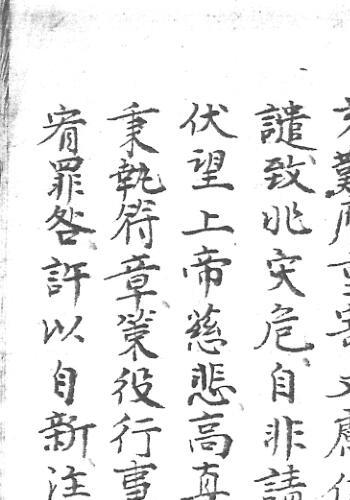 譴致兆灾危自非請
伏望上帝慈悲高真
秉執符章業役行事
宥罪咎許以自新注